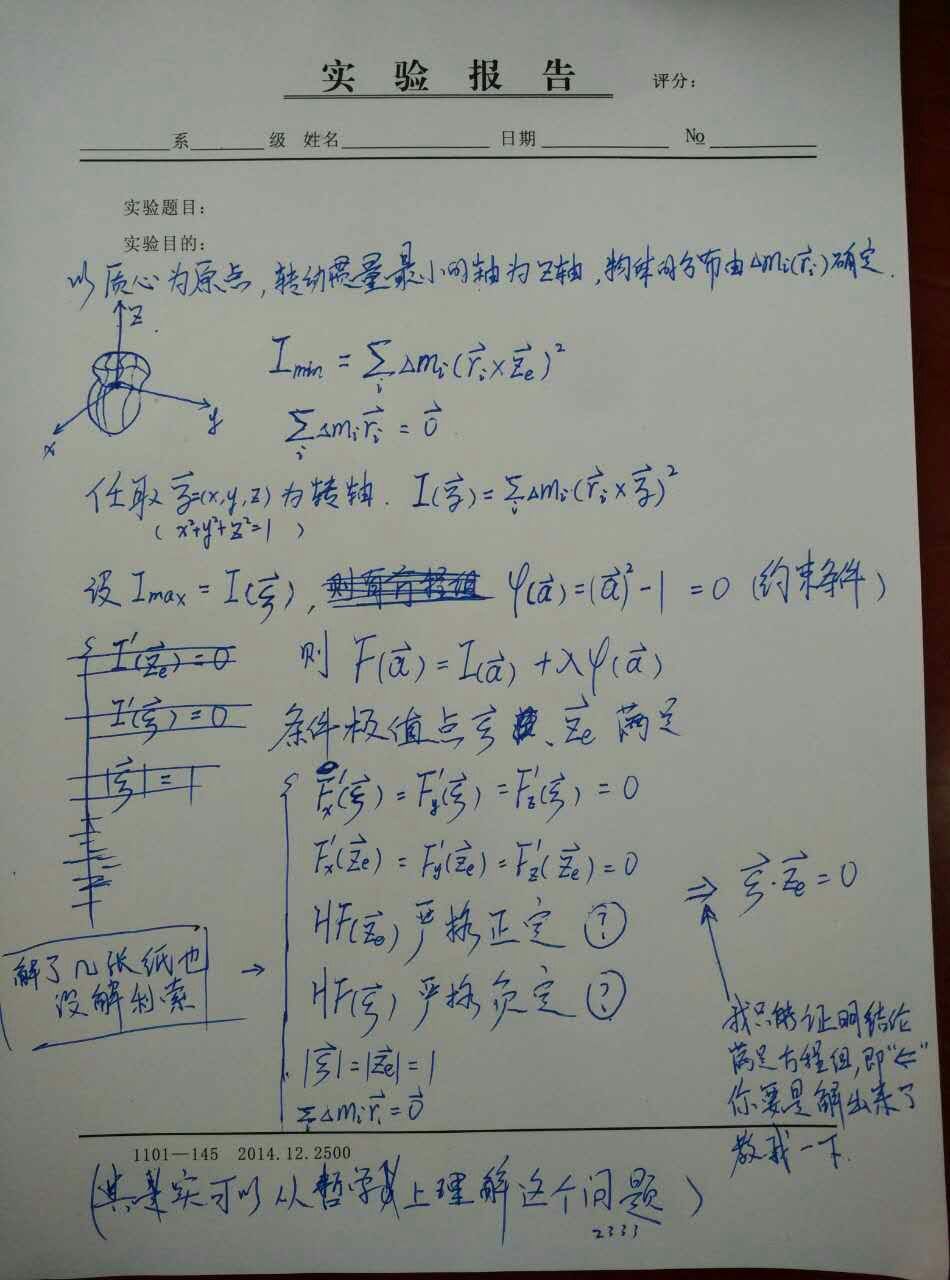 实验报告 评分:
系 级 姓名 日期 №
实验题目:
实验目的:
以质心为原点,转动惯量最小的轴为Z轴,物体的分布由Δmᵢ(r⃗ᵢ)确定.
z
y
x
I_min = Σᵢ Δmᵢ(r⃗ᵢ×z⃗ₑ)²
Σᵢ Δmᵢr⃗ᵢ = 0⃗
任取 ξ⃗=(x,y,z) 为转轴. I(ξ⃗) = Σᵢ Δmᵢ(r⃗ᵢ×ξ⃗)²
(x²+y²+z²=1)
设 I_max = I(ξ⃗), 则有方程组 φ(a⃗)=(a⃗)²-1=0 (约束条件)
I'(z⃗ₑ)=0
I'(ξ⃗)=0
|ξ⃗|=1
则 F(a⃗)=I(a⃗)+λφ(a⃗)
条件极值点 ξ⃗、z⃗ₑ 满足
F'ₓ(ξ⃗)=F'y(ξ⃗)=F'z(ξ⃗)=0
F'ₓ(z⃗ₑ)=F'y(z⃗ₑ)=F'z(z⃗ₑ)=0
HF(z⃗ₑ) 严格正定 ?
HF(ξ⃗) 严格负定 ?
|ξ⃗|=|z⃗ₑ|=1
Σᵢ Δmᵢr⃗ᵢ=0⃗
⇒ ξ⃗·z⃗ₑ=0
解了几张纸也
没解利索
→
我只能证明结论
满足方程组,即"⇐"
你要是解出来了
教我一下.
1101—145 2014.12.2500
(其实可以从哲学上理解这个问题)
2333